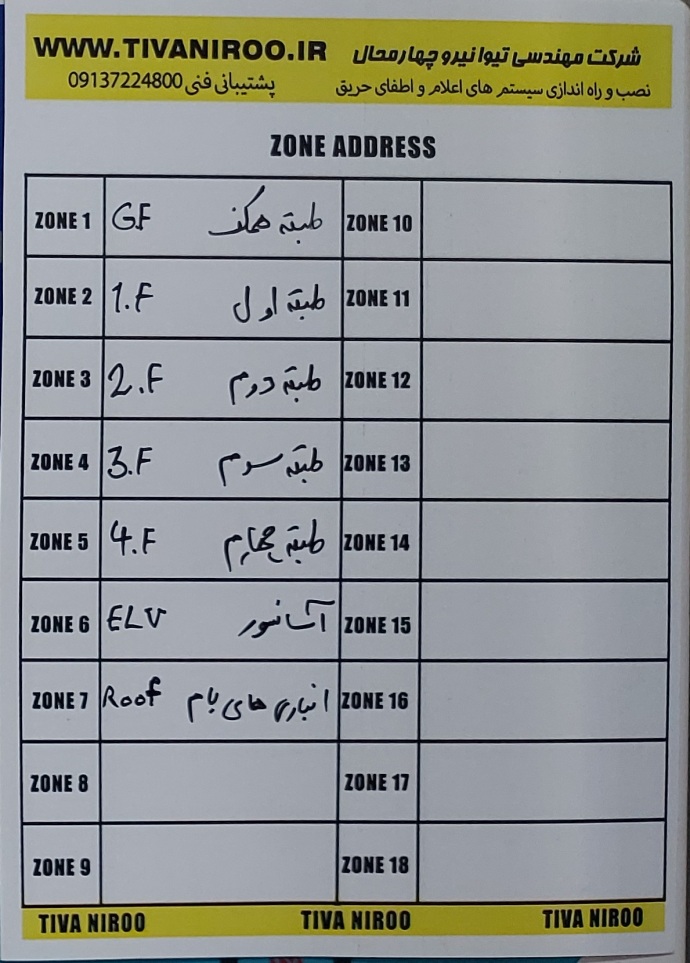 WWW.TIVANIROO.IR شرکت مهندسی تیوا نیرو چهارمحال
پشتیبانی فنی 09137224800 نصب و راه اندازی سیستم های اعلام و اطفای حریق
ZONE ADDRESS
ZONE 1 GF طبقه همکف ZONE 10
ZONE 2 1.F طبقه اول ZONE 11
ZONE 3 2.F طبقه دوم ZONE 12
ZONE 4 3.F طبقه سوم ZONE 13
ZONE 5 4.F طبقه چهارم ZONE 14
ZONE 6 ELV آسانسور ZONE 15
ZONE 7 Roof انباری های بام ZONE 16
ZONE 8 ZONE 17
ZONE 9 ZONE 18
TIVA NIROO TIVA NIROO TIVA NIROO